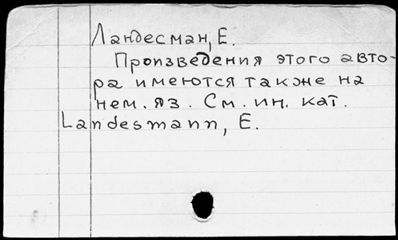 Ландесман, Е.
Произведения этого авто-
ра имеются также на
нем. яз. См. ин. кат.
Landesmann, E.